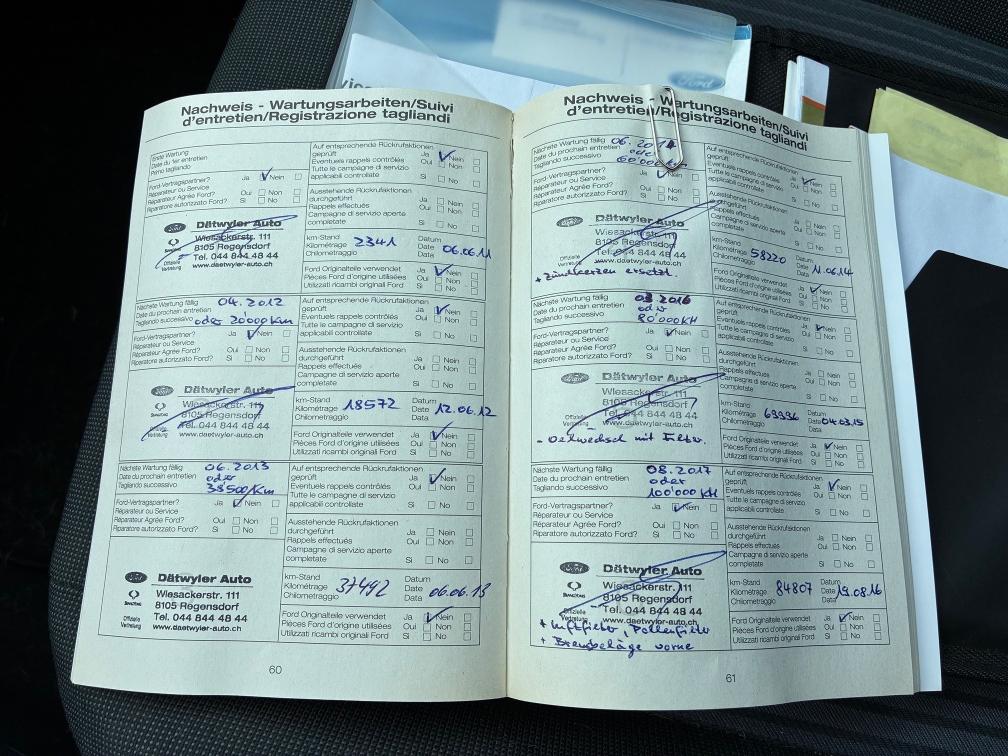 Ford
Nachweis - Wartungsarbeiten/Suivi
d'entretien/Registrazione tagliandi
Erste Wartung
Date du 1er entretien
Primo tagliando
Auf entsprechende Rückrufaktionen
geprüft Ja Nein
Eventuels rappels contrôlés Oui Non
Tutte le campagne di servizio
applicabili controllate Si No
Ford-Vertragspartner? Ja Nein
Réparateur ou Service
Réparateur Agrée Ford? Oui Non
Riparatore autorizzato Ford? Si No
Ausstehende Rückrufaktionen
durchgeführt Ja Nein
Rappels effectués Oui Non
Campagne di servizio aperte
completate Si No
Dätwyler Auto
Wiesackerstr. 111
8105 Regensdorf
Tel. 044 844 48 44
www.daetwyler-auto.ch
Offizielle
Vertretung
km-Stand
Kilométrage 2341
Chilometraggio
Datum
Date 06.06.11
Data
Ford Originalteile verwendet Ja Nein
Pièces Ford d'origine utilisées Oui Non
Utilizzati ricambi originali Ford Si No
Nächste Wartung fällig 04.2012
Date du prochain entretien
Tagliando successivo oder 20'000 Km
Auf entsprechende Rückrufaktionen
geprüft Ja Nein
Eventuels rappels contrôlés Oui Non
Tutte le campagne di servizio
applicabili controllate Si No
Ford-Vertragspartner? Ja Nein
Réparateur ou Service
Réparateur Agrée Ford? Oui Non
Riparatore autorizzato Ford? Si No
Ausstehende Rückrufaktionen
durchgeführt Ja Nein
Rappels effectués Oui Non
Campagne di servizio aperte
completate Si No
Dätwyler Auto
Wiesackerstr. 111
8105 Regensdorf
Tel. 044 844 48 44
www.daetwyler-auto.ch
Offizielle
Vertretung
km-Stand
Kilométrage 18572
Chilometraggio
Datum
Date 12.06.12
Data
Ford Originalteile verwendet Ja Nein
Pièces Ford d'origine utilisées Oui Non
Utilizzati ricambi originali Ford Si No
Nächste Wartung fällig 06.2013
Date du prochain entretien oder
Tagliando successivo 38'500 Km
Auf entsprechende Rückrufaktionen
geprüft Ja Nein
Eventuels rappels contrôlés Oui Non
Tutte le campagne di servizio
applicabili controllate Si No
Ford-Vertragspartner? Ja Nein
Réparateur ou Service
Réparateur Agrée Ford? Oui Non
Riparatore autorizzato Ford? Si No
Ausstehende Rückrufaktionen
durchgeführt Ja Nein
Rappels effectués Oui Non
Campagne di servizio aperte
completate Si No
Dätwyler Auto
Wiesackerstr. 111
8105 Regensdorf
Tel. 044 844 48 44
www.daetwyler-auto.ch
Offizielle
Vertretung
km-Stand
Kilométrage 37492
Chilometraggio
Datum
Date 06.06.13
Data
Ford Originalteile verwendet Ja Nein
Pièces Ford d'origine utilisées Oui Non
Utilizzati ricambi originali Ford Si No
60
Nachweis - Wartungsarbeiten/Suivi
d'entretien/Registrazione tagliandi
Nächste Wartung fällig 06.2014
Date du prochain entretien oder
Tagliando successivo 60'000 km
Auf entsprechende Rückrufaktionen
geprüft Ja Nein
Eventuels rappels contrôlés Oui Non
Tutte le campagne di servizio
applicabili controllate Si No
Ford-Vertragspartner? Ja Nein
Réparateur ou Service
Réparateur Agrée Ford? Oui Non
Riparatore autorizzato Ford? Si No
Ausstehende Rückrufaktionen
durchgeführt Ja Nein
Rappels effectués Oui Non
Campagne di servizio aperte
completate Si No
Dätwyler Auto
Wiesackerstr. 111
8105 Regensdorf
Tel. 044 844 48 44
www.daetwyler-auto.ch
Offizielle
Vertretung
+ Zündkerzen ersetzt.
km-Stand
Kilométrage 58220
Chilometraggio
Datum
Date 11.06.14
Data
Ford Originalteile verwendet Ja Nein
Pièces Ford d'origine utilisées Oui Non
Utilizzati ricambi originali Ford Si No
Nächste Wartung fällig 03.2016
Date du prochain entretien oder
Tagliando successivo 80'000 KM
Auf entsprechende Rückrufaktionen
geprüft Ja Nein
Eventuels rappels contrôlés Oui Non
Tutte le campagne di servizio
applicabili controllate Si No
Ford-Vertragspartner? Ja Nein
Réparateur ou Service
Réparateur Agrée Ford? Oui Non
Riparatore autorizzato Ford? Si No
Ausstehende Rückrufaktionen
durchgeführt Ja Nein
Rappels effectués Oui Non
Campagne di servizio aperte
completate Si No
Dätwyler Auto
Wiesackerstr. 111
8105 Regensdorf
Tel. 044 844 48 44
www.daetwyler-auto.ch
- Oelwechsel mit Filter.
km-Stand
Kilométrage 69996
Chilometraggio
Datum
Date 04.03.15
Data
Ford Originalteile verwendet Ja Nein
Pièces Ford d'origine utilisées Oui Non
Utilizzati ricambi originali Ford Si No
Nächste Wartung fällig 08.2017
Date du prochain entretien oder
Tagliando successivo 100'000 KM
Auf entsprechende Rückrufaktionen
geprüft Ja Nein
Eventuels rappels contrôlés Oui Non
Tutte le campagne di servizio
applicabili controllate Si No
Ford-Vertragspartner? Ja Nein
Réparateur ou Service
Réparateur Agrée Ford? Oui Non
Riparatore autorizzato Ford? Si No
Ausstehende Rückrufaktionen
durchgeführt Ja Nein
Rappels effectués Oui Non
Campagne di servizio aperte
completate Si No
Dätwyler Auto
Wiesackerstr. 111
8105 Regensdorf
Tel. 044 844 48 44
www.daetwyler-auto.ch
Offizielle
Vertretung
+ Luftfilter, Pollenfilter
+ Bremsbeläge vorne
km-Stand
Kilométrage 84807
Chilometraggio
Datum
Date 19.08.16
Data
Ford Originalteile verwendet Ja Nein
Pièces Ford d'origine utilisées Oui Non
Utilizzati ricambi originali Ford Si No
61